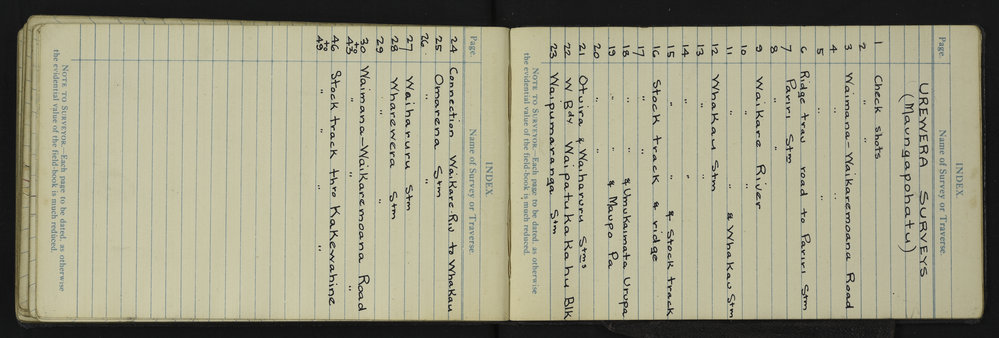 INDEX.
Page. Name of Survey or Traverse.
UREWERA SURVEYS
(Maungapohatu)
1 Check shots
2 " "
3 Waimana-Waikaremoana Road
4 " "
5 " "
6 Ridge trav road to Pariri Stm
7 Pariri Stm
8 " "
9 Waikare River
10 " "
11 " " & Whakau Stm
12 Whakau Stm
13 " "
14 " "
15 " " & Stock track
16 Stock track & ridge
17 " "
18 " " & Umukaimata Urupa
19 " " & Maupo Pa
20 " "
21 Otuira & Waiharuru Stms
22 W Bdy Waipatukakahu Blk
23 Waipumaranga Stm
NOTE TO SURVEYOR.—Each page to be dated, as otherwise
the evidential value of the field-book is much reduced.
INDEX.
Page. Name of Survey or Traverse.
24 Connection Waikare Riv to Whakau
25 Omarena Stm
26 "
27 Waiharuru Stm
28 Wharewera Stm
29 "
30 Waimana-Waikaremoana Road
to
43 " " "
46 Stock track thro Kakewahine
to
49 " " " "
NOTE TO SURVEYOR.—Each page to be dated, as otherwise
the evidential value of the field-book is much reduced.